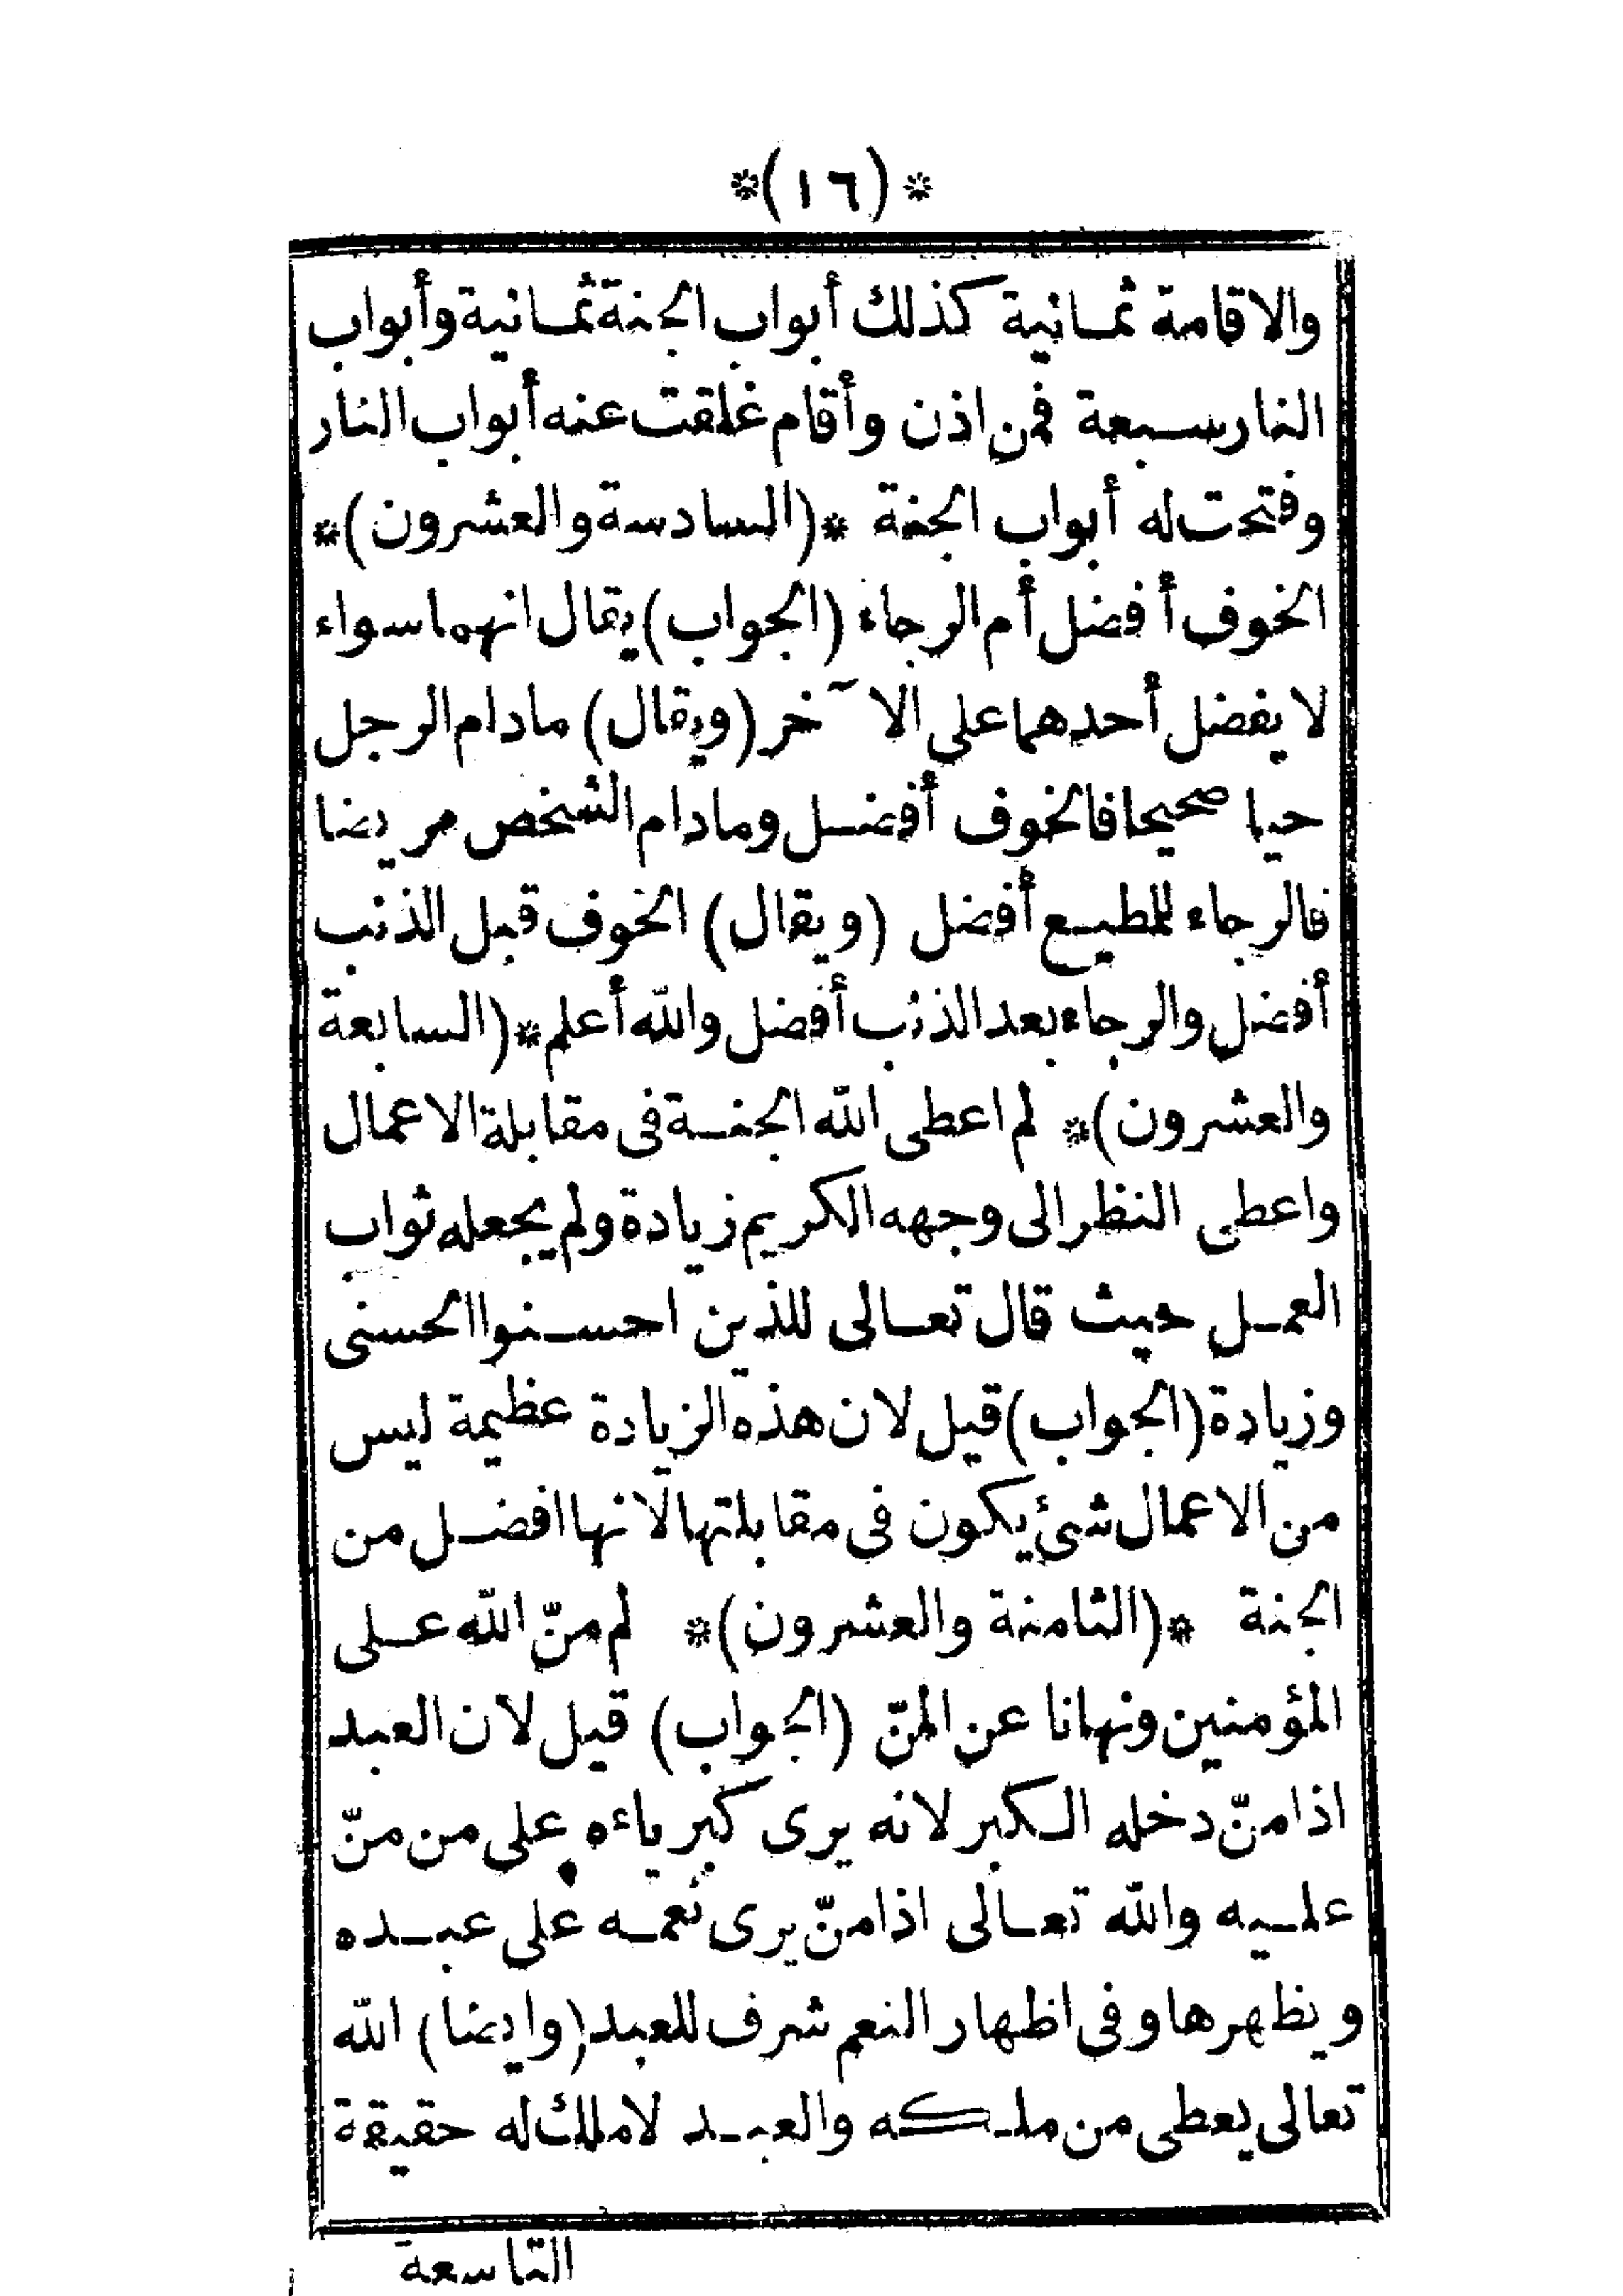 *(١٦)*
والاقامة ثمانية كذلك أبواب الجنة ثمانية وأبواب
النار سبعة فمن اذن وأقام غلقت عنه أبواب النار
وفتحت له أبواب الجنة *(السادسة والعشرون)*
الخوف أفضل أم الرجاء (الجواب) يقال انهما سواء
لا يفضل أحدهما على الآخر (ويقال) مادام الرجل
حيا صحيحا فالخوف أفضل ومادام الشخص مريضا
فالرجاء للمطيع أفضل (ويقال) الخوف قبل الذنب
أفضل والرجاء بعد الذنب أفضل والله أعلم *(السابعة
والعشرون)* لم اعطى الله الجنة فى مقابلة الاعمال
واعطى النظر الى وجهه الكريم زيادة ولم يجعله ثواب
العمل حيث قال تعالى للذين احسنوا الحسنى
وزيادة (الجواب) قيل لان هذه الزيادة عظيمة ليس
من الاعمال شئ يكون فى مقابلتها لانها افضل من
الجنة *(الثامنة والعشرون)* لم منّ الله على
المؤمنين ونهانا عن المنّ (الجواب) قيل لان العبد
اذا منّ دخله الكبر لانه يرى كبرياءه على من منّ
عليه والله تعالى اذا منّ يرى نعمه على عبده
ويظهرها وفى اظهار النعم شرف للعبد (وايضا) الله
تعالى يعطى من ملكه والعبد لا ملك له حقيقة
التاسعة